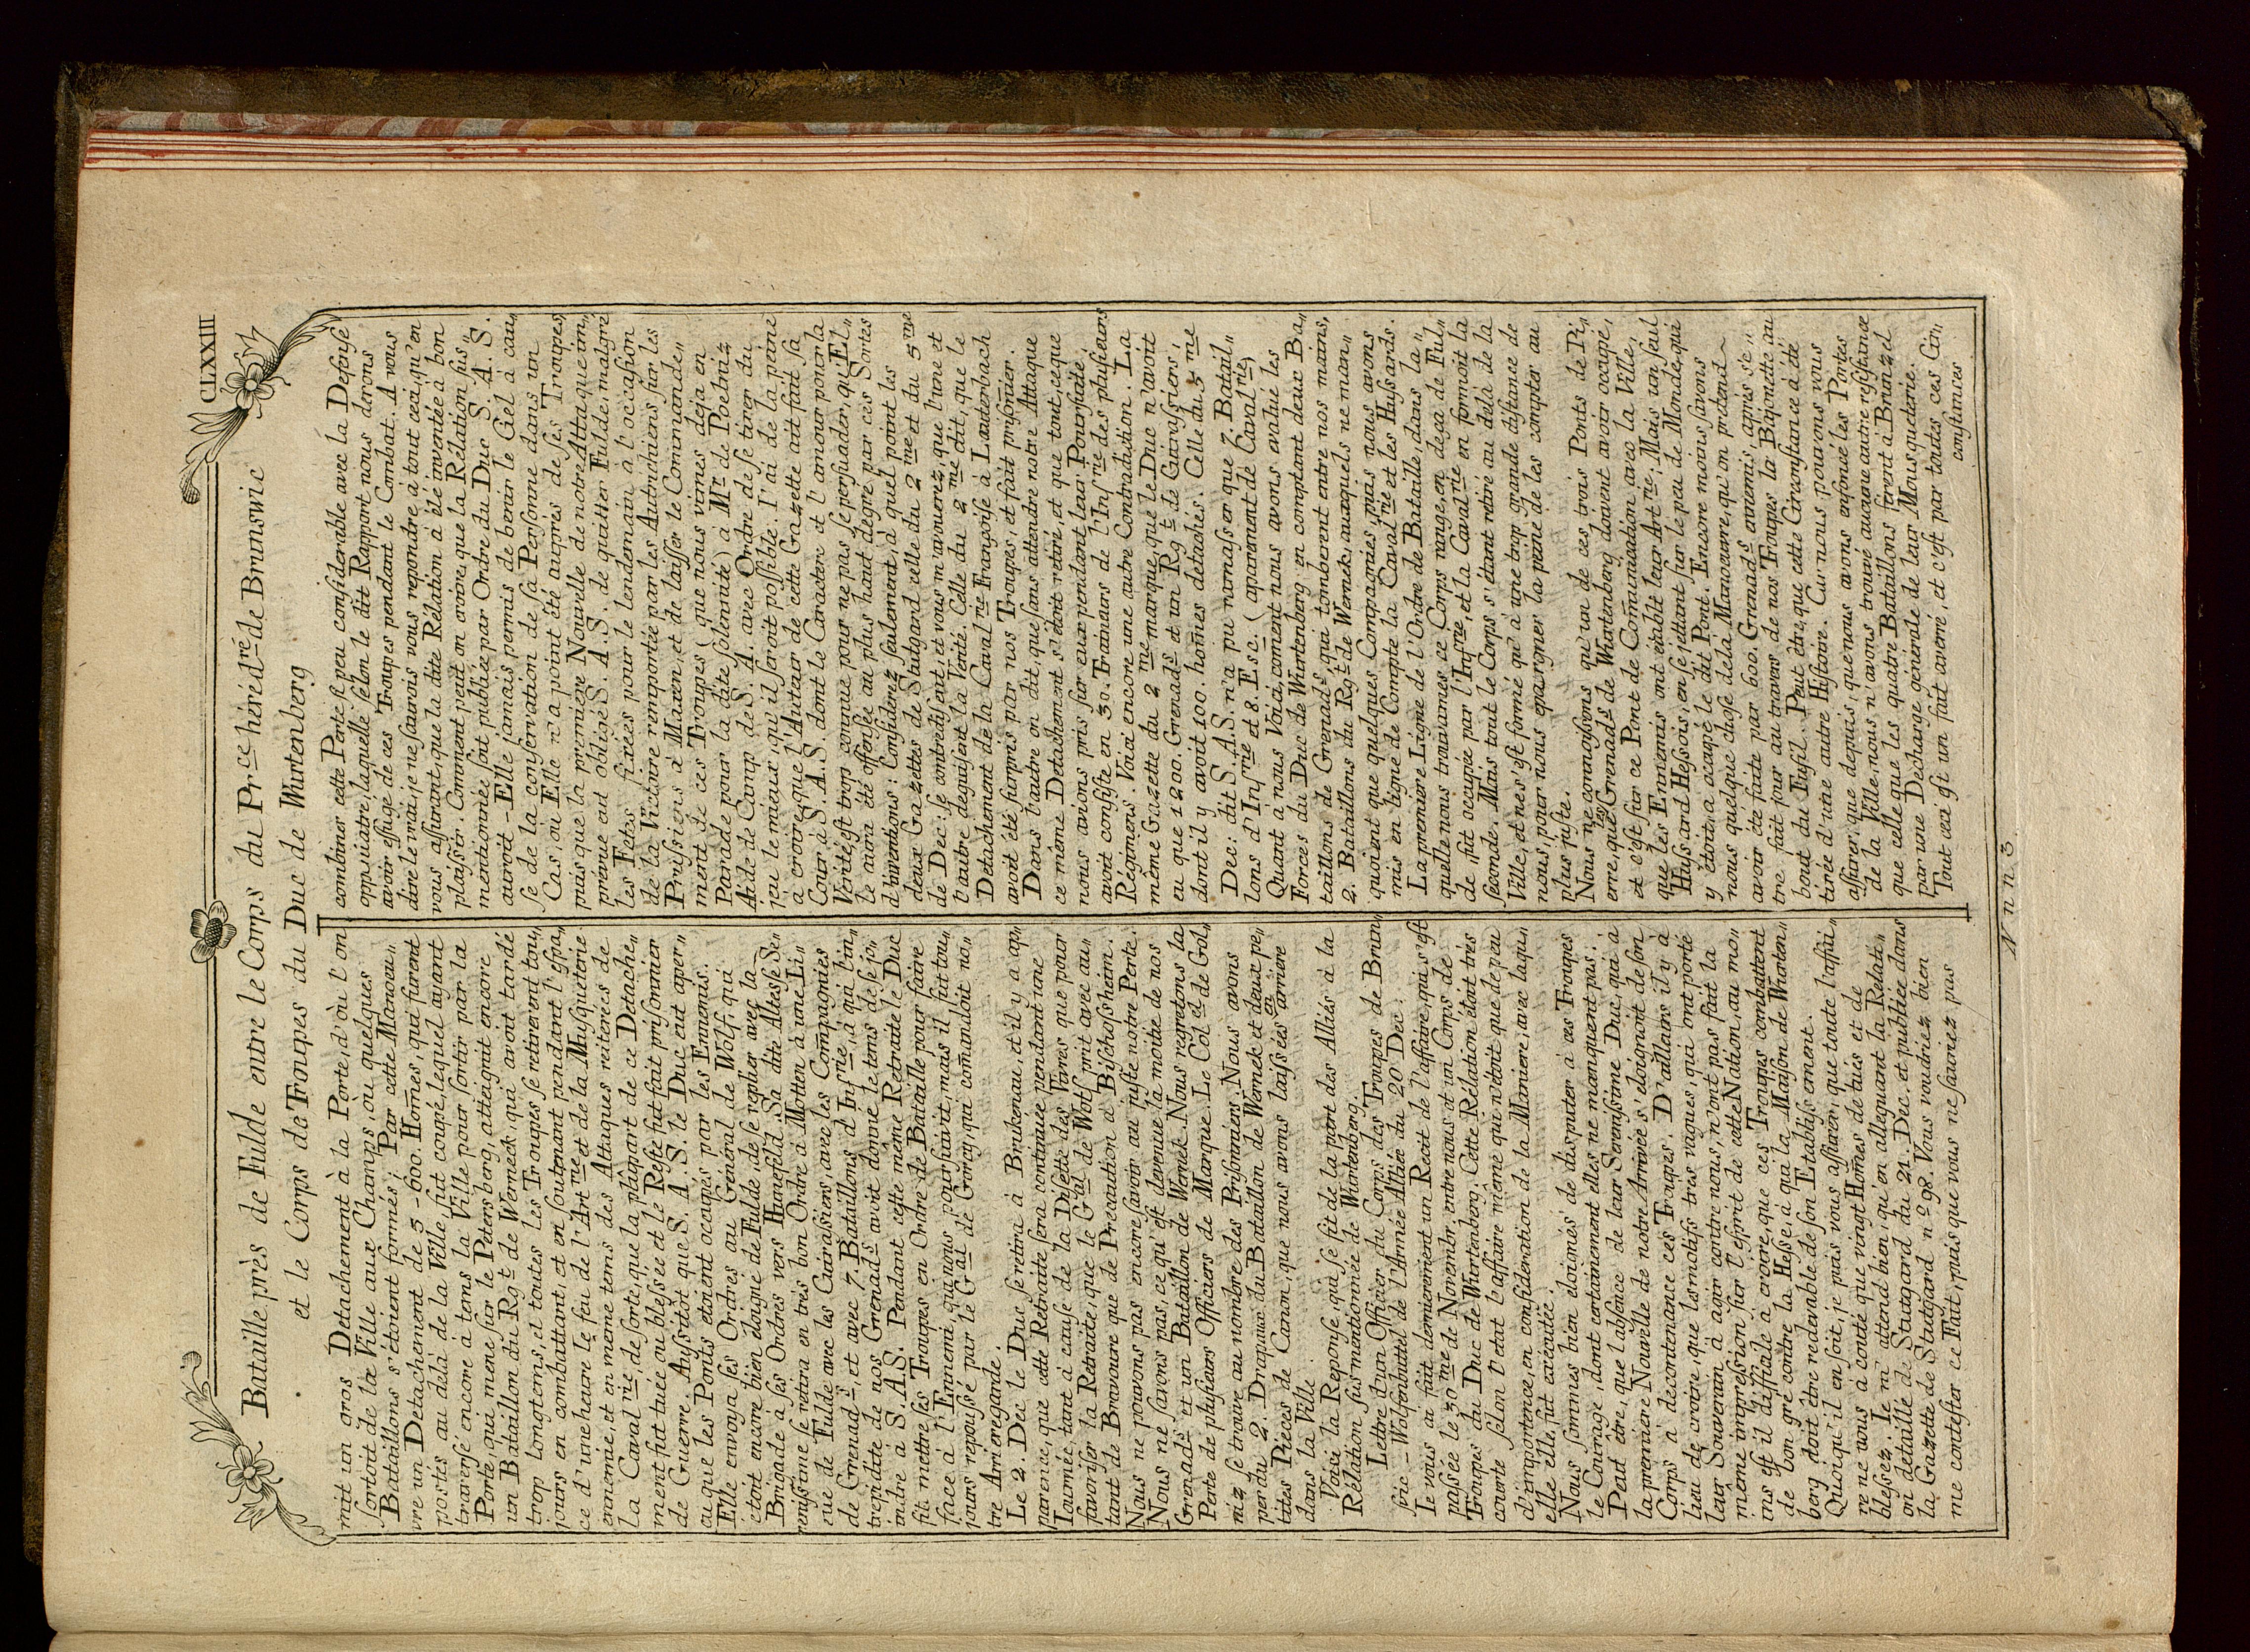 CLXXIII
Bataille près de Fulde entre le Corps du Pr.ce héréd.re de Brunswic
et le Corps de Troupes du Duc de Wurtenberg
mit un gros Detachement à la Porte, d'où l'on
sortoit de la Ville aux Champs, où quelques
Bataillons s'étoient formés; Par cette Manoeu„
vre un Detachement de 5-600. Hom̄es, qui furent
postés au delà de la Ville, fut coupé, lequel ayant
traversé encore à tems la Ville pour sortir par la
Porte qui mene sur le Petersberg, atteignit encore
un Bataillon du Rgt de Werneck, qui avoit tardé
trop longtems, et toutes les Troupes se retirerent tou„
jours en combattant, et en soutenant pendant l'espa„
ce d'une heure le feu de l'Art.rie et de la Musqueterie
ennemie, et en meme tems des Attaques reiterées de
la Caval.rie, de sorte, que la plûpart de ce Detache„
ment fut tuée ou blessée et le Reste fut fait prisonnier
de Guerre. Aussitôt que S. A. S. le Duc eut aper„
çu que les Ponts etoient occupés par les Ennemis.
Elle envoya ses Ordres au Général de Wolf, qui
etoit encore bien éloigné de Fulde, de se replier avec la
Brigade à ses Ordres vers Hunefeld. Sa dite Altesse Se„
renissime se retira en très bon Ordre à Motten à une Li„
eue de Fulde avec les Cuirassiers, avec les Compagnies
de Grenad.s, et avec 7. Bataillons d'Inf.rie, à qui l'in„
trepidité de nos Grenad.s avoit donné le tems de se jo„
indre à S. A. S. Pendant cette même Retraite le Duc
fit mettre ses Troupes en Ordre de Bataille pour faire
face à l'Ennemi, qui nous poursuivit, mais il fut tou„
jours repoussé par le G.al de Gorcy, qui com̄andoit no„
tre Arrieregarde.
Le 2. Dec. le Duc se retira à Brukenau, et il y a ap„
parence, que cette Retraite sera continuée pendant une
Journée, tant à cause de la Disette des Vivres que pour
favoriser la Retraite, que le G.al de Wolf prit avec au„
tant de Bravoure que de Precaution à Bischofsheim.
Nous ne pouvons pas encore savoir au juste notre Perte.
Nous ne savons pas, ce qu'est devenue la moitié de nos
Grenad.s et un Bataillon de Wernek. Nous regretons la
Perte de plusieurs Officiers de Marque. Le Col.el de Göl„
niz se trouve au nombre des Prisonniers. Nous avons
perdu 2. Drapaux du Bataillon de Wernek et deux pe„
tites Pieces de Canon, que nous avons laissées en arriere
dans la Ville.
Voici la Reponse, qui se fit de la part des Alliés à la
Rélation susmentionnée de Wurtenberg.
Lettre d'un Officier du Corps des Troupes de Brun„
svic-Wolfenbuttel de l'Armée Alliée du 20 Dec.
Je vous ai fait dernierement un Recit de l'affaire, qui s'est
passée le 30me de Novembr. entre nous et un Corps de
Troupes du Duc de Wurtenberg. Cette Rélation étoit très
courte selon l'etat l'affaire même qui n'étoit que de peu
d'importence, en consideration de la Maniere, avec laqu„
elle elle fut exécutée.
Nous sommes bien eloignés de disputer à ces Troupes
le Courage, dont certainement elles ne manquent pas:
Peut être, que l'absence de leur Serenissime Duc, qui à
la premiere Nouvelle de notre Arrivée s'eloignoit de son
Corps à decontenancé ces Troupes. D'ailleurs il y à
lieu de croire, que les motifs tres vagues, qui ont porté
leur Souverain à agir contre nous, n'ont pas fait la
même impression sur l'esprit de cette Nation, au mo„
ins est il difficile à croire, que ces Troupes combattent
de bon gré contre la Hesse, à qui la Maison de Wurten„
berg doit être redevable de son Etablissement.
Quoiqu'il en soit, je puis vous assurer, que toute l'affai„
re ne nous à coutté que vingt Hom̄es de tués et de
blessez. Je m'attend bien, qu'en alleguant la Relati„
on detaillé de Stutgard du 21. Dec. et publiée dans
la Gazette de Stuttgard no 98. Vous voudriez bien
me contester ce Fait, puis que vous ne sauriez pas
combiner cette Perte si peu considerable avec la Defense
oppiniatre, laquelle selon le dit Rapport nous devons
avoir essuyé de ces Troupes pendant le Combat. A vous
dire le vrai, je ne saurois vous repondre à tout ceci, qu'en
vous assurant, que la dite Rélation à été inventée à bon
plaisir. Comment peut on croire, que la Rélation sus„
mentionnée soit publiée par Ordre du Duc S. A. S.
auroit-Elle jamais permis de ternir le Ciel à cau„
se de la conservation de sa Personne dans un
Cas, où Elle n'a point été auprès de ses Troupes,
puis que la premiere Nouvelle de notre Attaque im„
prevue eut obligé S. A. S. de quitter Fulde, malgré
les Fetes fixées pour le lendemain à l'occasion
de la Victoire remportée par les Autrichiens sur les
Prussiens à Maxen, et de laisser le Commande„
ment de ces Troupes (que nous vimes deja en
Parade pour la dite solennité) à Mr. de Poelniz
Aide de Camp de S. A. avec Ordre de se tirer du
jeu le mieux, qu'il seroit possible. J'ai de la peine
à croire, que l'Auteur de cette Gazette ait fait sa
Cour à S. A. S. dont le Caractere et l'amour pour la
Verité est trop connue pour ne pas se persuader, qu'El„
le aura été offensée au plus haut degré par ces Sortes
d'inventions: Considerez seulement, à quel point les
deux Gazettes de Stutgard celle du 2me et du 5me
de Dec: se contredisent, et vous m'avouerez, que l'une et
l'autre deguisent la Verité. Celle du 2me dit, que le
Detachement de la Caval.rie Françoise à Lauterbach
avoit été surpris par nos Troupes, et fait prisonier.
Dans l'autre on dit, que sans attendre notre Attaque
ce même Detachement s'étoit retiré, et que tout, ce que
nous avions pris sur eux pendant leur Poursuite,
avoit consisté en 30. Traineurs de l'Inf.rie des plusieurs
Régimens. Voici encore une autre Contradiction. La
même Gazette du 2me marque, que le Duc n'avoit
eu que 1200. Grenad.s et un Rg.t de Cuirassiers,
dont il y avoit 100. hom̄es detachés. Celle du 5me
Dec: dit S. A. S. n'a pu ramasser que 7. Batail„
lons d'Inf.rie et 8. Esc. (apparement de Caval.rie)
Quant à nous Voici, com̄ent nous avons evalué les
Forces du Duc de Wurtenberg en comptant deux Ba„
taillons de Grenad.s qui tomberent entre nos mains,
2. Bataillons du Rg.t de Wernek, auxquels ne man„
quoient que quelques Compagnies, puis nous avons
mis en ligne de Compte la Caval.rie et les Hussards.
La premiere Ligne de l'Ordre de Bataille, dans la„
quelle nous trouvames ce Corps rangé, en deça de Ful„
de, fut occupée par l'Inf.rie, et la Caval.rie en formoit la
seconde. Mais tout le Corps s'étant retiré au délà de la
Ville, et ne s'est formé qu'à une trop grande distance de
nous, pour nous epargner la peine de les compter au
plus juste.
Nous ne connoissons qu'un de ces trois Ponts de Pi„
erre, que les Grenad.s de Wurtenberg doivent avoir occupé,
et c'est sur ce Pont de Com̄unication avec la Ville,
que les Ennemis ont établi leur Art.rie; Mais un seul
Hussard Hessois, en se jettant sur le peu de Monde, qui
y étoit, a occupé le dit Pont. Encore moins savons
nous quelque chose de la Manoeuvre, qu'on pretend
avoir été faite par 600. Grenad.s ennemis, apres s'é„
tre fait jour au travers de nos Troupes la Bajonette au
bout du Fusil. Peut être, que cette Circonstance à été
tirée d'une autre Histoire. Car nous pouvons vous
assurer, que depuis, que nous avons enfoncée les Portes
de la Ville, nous n'avons trouvé aucune autre resistance
que celle que les quatre Bataillons firent à Brunzel
par une Decharge generale de leur Mousqueterie.
Tout ceci est un fait averré, et c'est par toutes ces Cir„
constances
Nnn 3